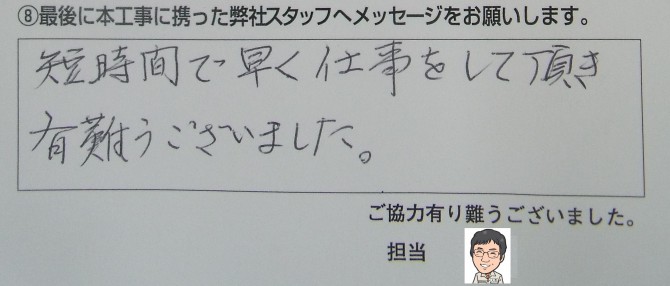 ⑧最後に本工事に携った弊社スタッフへメッセージをお願いします。
短時間で早く仕事をして頂き
有難うございました。
ご協力有り難うございました。
担当